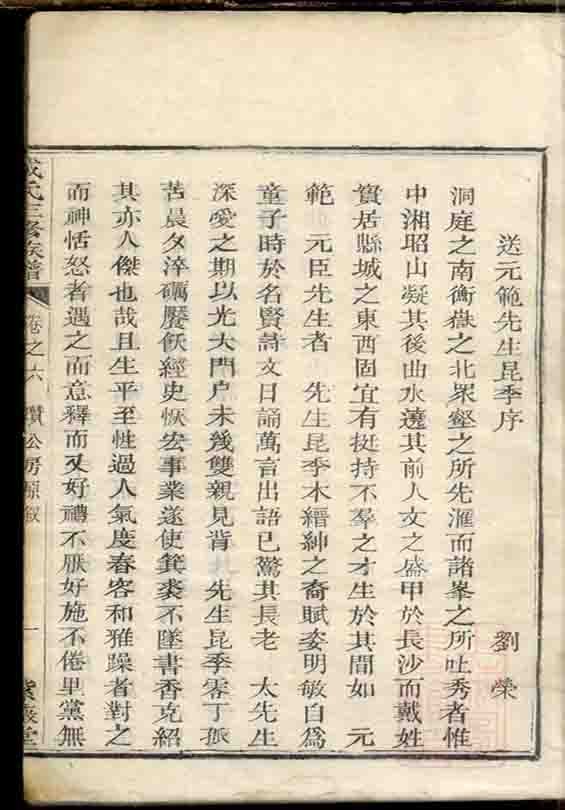 送元範先生昆季序
劉榮
洞庭之南衡嶽之北眾壑之所先滙而諸峯之所吐秀者惟
中湘昭山凝其後曲水遶其前人文之盛甲於長沙而戴姓
實居縣城之東西固宜有挺持不羣之才生於其間如 元
範 元臣先生者 先生昆季本縉紳之裔賦姿明敏自為
童子時於名賢詩文日誦萬言出語已驚其長老 太先生
深愛之期以光大門户未幾雙親見背 先生昆季零丁孤
苦晨夕淬礪饜飫經史恢宏事業遂使箕裘不墜書香克紹
其亦人傑也哉且生平至性過人氣度春容和雅躁者對之
而神恬怒者遇之而意釋而又好禮不厭好施不倦里黨無
氏三修族譜
卷之六
讚公房源叙
一
堂